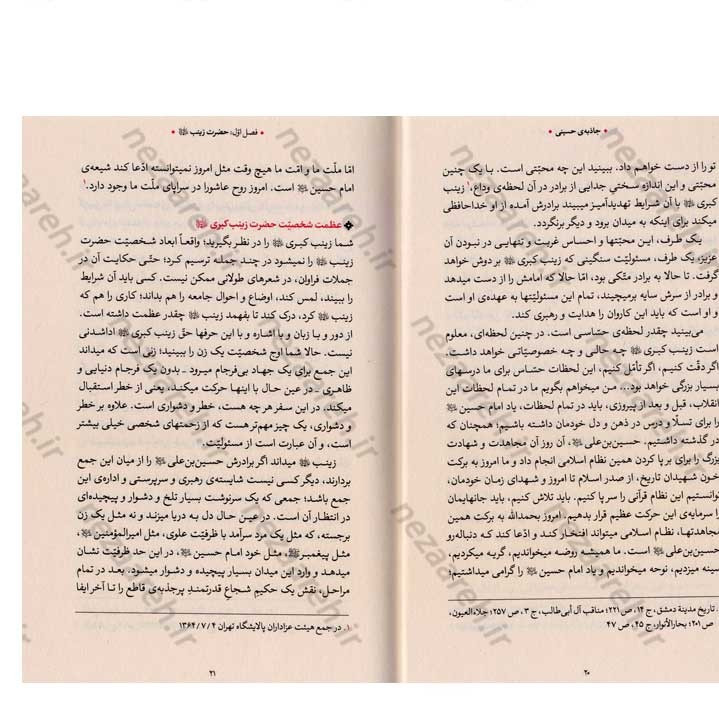 • جاذبه‌ی حسینی •
تو را از دست خواهم داد. ببینید این چه محبّتی است. با یک چنین
محبّتی و این اندازه سختیِ جدایی از برادر در آن لحظه‌ی وداع،۱ زینب
کبری با آن شرایط تهدیدآمیز میبیند برادرش آمده از او خداحافظی
میکند برای اینکه به میدان برود و دیگر برنگردد.
یک طرف، این محبّتها و احساس غربت و تنهایی در نبودن آن
عزیز، یک طرف، مسئولیّت سنگینی که زینب کبری بر دوش خواهد
گرفت. تا حالا به برادر متّکی بود، امّا حالا که امامش را از دست میدهد
و برادر از سرش سایه برمیچیند، تمام این مسئولیّتها به عهده‌ی او است
و او است که باید این کاروان را هدایت و رهبری کند.
می‌بینید چقدر لحظه‌ی حسّاسی است. در چنین لحظه‌ای، معلوم
است زینب کبری چه حالی و چه خصوصیّاتی خواهد داشت.
اگر دقّت کنیم، اگر تأمّل کنیم، این لحظات حسّاس برای ما درسهای
بسیار بزرگی خواهد بود... من میخواهم بگویم ما در تمام لحظات این
انقلاب، قبل و بعد از پیروزی، باید در تمام لحظات، یاد امام حسین
را برای تسلّا و درس در ذهن و دل خودمان داشته باشیم؛ همچنان که
در گذشته داشتیم. حسین‌بن‌علی، آن روز آن مجاهدت و شهادت
بزرگ را برای بر پا کردن همین نظام اسلامی انجام داد و ما امروز به برکت
خون شهیدان تاریخ، از صدر اسلام تا امروز و شهدای زمان خودمان،
توانستیم این نظام قرآنی را سر پا کنیم. باید تلاش کنیم، باید جانهایمان
را سرمایه‌ی این حرکت عظیم قرار بدهیم. امروز بحمدالله به برکت همین
مجاهدتها، نظام اسلامی میتواند افتخار کند و ادّعا کند که دنباله‌رو
حسین‌بن‌علی است. ما همیشه روضه میخواندیم، گریه میکردیم،
سینه میزدیم، نوحه میخواندیم و یاد امام حسین را گرامی میداشتیم؛
. تاریخ مدینة دمشق، ج ۱۴، ص ۲۲۱؛ مناقب آل أبی‌طالب، ج ۳، ص ۲۵۷؛ جلاءالعیون،
ص ۲۰۱؛ بحارالأنوار، ج ۴۵، ص ۴۷
۲۰
• فصل اوّل: حضرت زینب •
امّا ملّت ما و امّت ما هیچ وقت مثل امروز نمیتوانسته ادّعا کند شیعه‌ی
امام حسین است. امروز روح عاشورا در سراپای ملّت ما وجود دارد.۱
عظمت شخصیّت حضرت زینب کبری
شما زینب کبری را در نظر بگیرید؛ واقعاً ابعاد شخصیّت حضرت
زینب را نمیشود در چند جمله ترسیم کرد؛ حتّی حکایت آن در
جملات فراوان، در شعرهای طولانی ممکن نیست. کسی باید آن شرایط
را ببیند، لمس کند، اوضاع و احوال جامعه را هم بداند؛ کاری را هم که
زینب کرد، درک کند تا بفهمد زینب چقدر عظمت داشته است.
از دور و با زبان و با اشاره و با این حرفها حقّ زینب کبری اداشدنی
نیست. حالا شما اوج شخصیّت یک زن را ببینید؛ زنی است که میداند
این جمع برای یک جهاد بی‌فرجام میرود ــ بدون یک فرجام دنیایی و
ظاهری ــ در عین حال با اینها حرکت میکند، یعنی از خطر استقبال
میکند. در این سفر هر چه هست، خطر و دشواری است. علاوه بر خطر
و دشواری، یک چیز مهم‌تر هست که از زحمتهای شخصی خیلی بیشتر
است، و آن عبارت است از مسئولیّت.
زینب میداند اگر برادرش حسین‌بن‌علی را از میان این جمع
بردارند، دیگر کسی نیست شایسته‌ی رهبری و سرپرستی و اداره‌ی این
جمع باشد؛ جمعی که یک سرنوشت بسیار تلخ و دشوار و پیچیده‌ای
در انتظار آن است. در عین حال دل به دریا میزند و نه مثل یک زن
برجسته، که مثل یک مرد سرآمد با ظرفیّت علوی، مثل امیرالمؤمنین،
مثل پیغمبر، مثل خود امام حسین، در این حد ظرفیّت نشان
میدهد و وارد این میدان بسیار پیچیده و دشوار میشود. بعد در تمام
مراحل، نقش یک حکیمِ شجاعِ قدرتمندِ پرجذبه‌ی قاطع را تا آخر ایفا
۱. در جمع هیئت عزاداران پالایشگاه تهران ۱۳۶۴/۷/۴
۲۱
nezaareh.ir